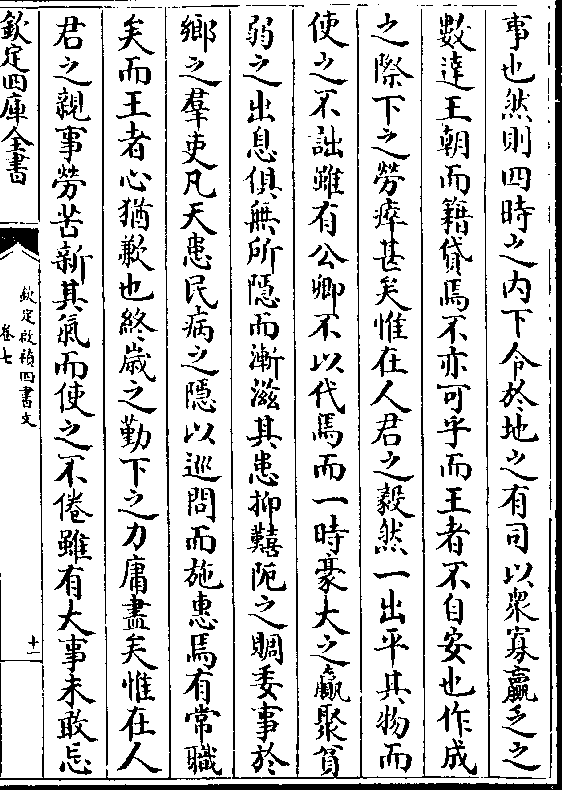 事也然則四時之内下令於地之有司以衆寡贏乏之
數達王朝而籍貸焉不亦可乎而王者不自安也作成
之際下之勞瘁甚矣惟在人君之毅然一出平其物而
使之不詘雖有公卿不以代焉而一時豪大之贏聚貧
弱之出息俱無所隱而漸滋其患抑囏阨之賙委事於
鄉之羣吏凡天患民病之隱以巡問而施惠焉有常職
矣而王者心猶歉也終歲之勤下之力庸盡矣惟在人
君之親事勞苦新其氣而使之不倦雖有大事未敢忘
欽定四庫全書
欽定啟禎四書文
卷七
十一